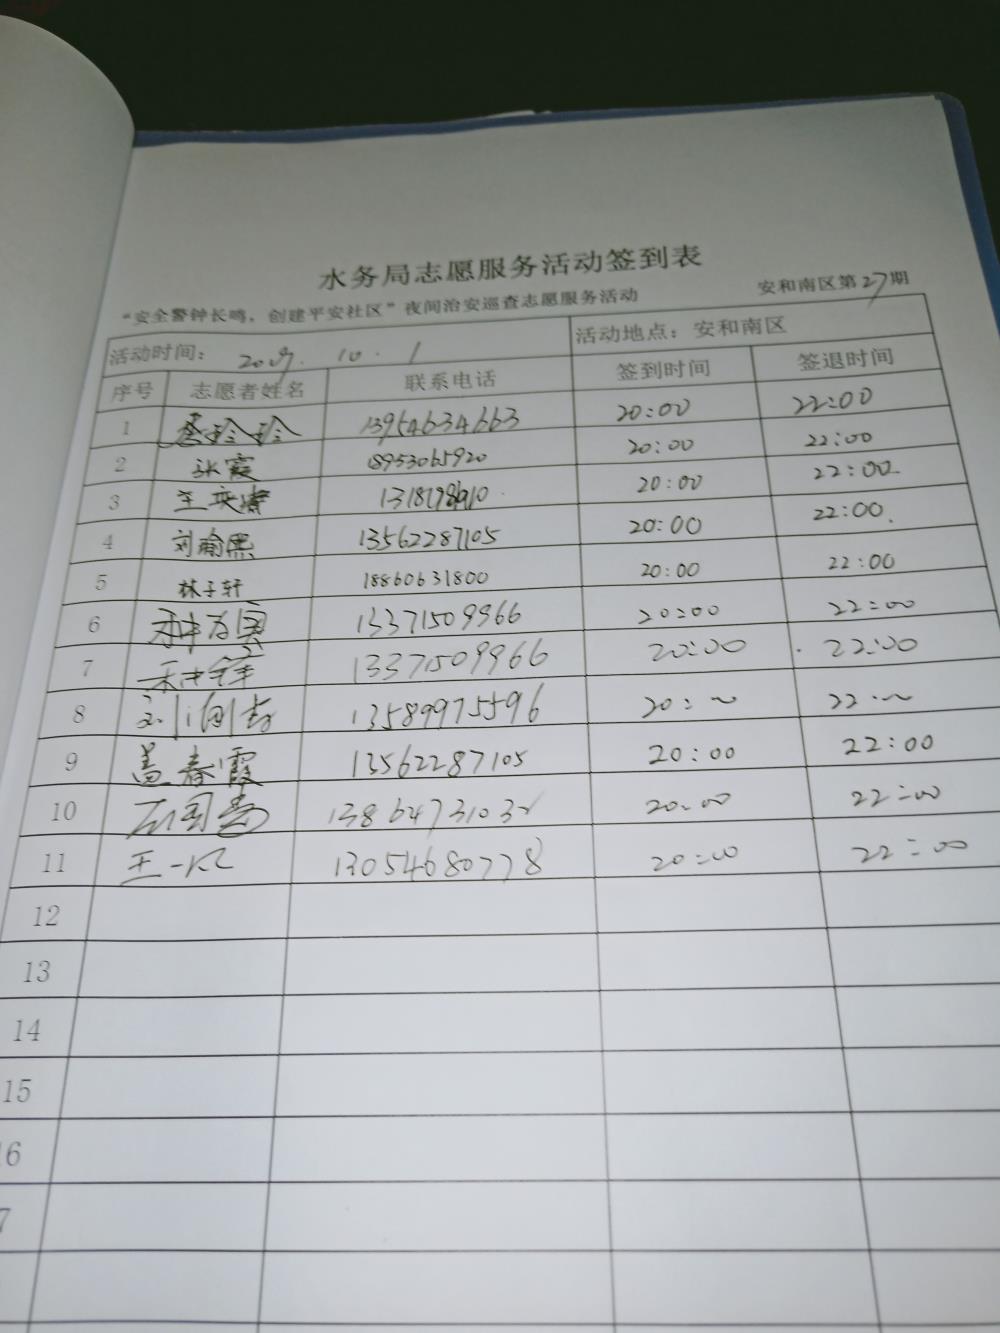 水务局志愿服务活动签到表
“安全警钟长鸣，创建平安社区”夜间治安巡查志愿服务活动 安和南区第27期
活动时间： 10.1 活动地点：安和南区
序号 志愿者姓名 联系电话 签到时间 签退时间
1 13954634663 20:00 22:00
2 张霞 18953065920 20:00 22:00
3 20:00 22:00
4 刘瀚熙 13562287105 20:00 22:00
5 林子轩 18860631800 20:00 22:00
6 13371509966 20:00 22:00
7 13371509966 20:00 22:00
8 13589975596 20:00 22:00
9 盖春霞 13562287105 20:00 22:00
10 20:00 22:00
11 王一 13054680778 20:00 22:00
12
13
14
15
16
7